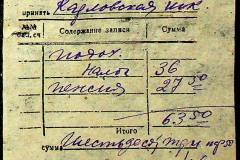 принять Кудловская шк
№№ бал.сч Содержание записи Сумма
подох.
Налог 36
пенсия 27 50
63 50
Итого
сумма Шестьдесят три руб 50